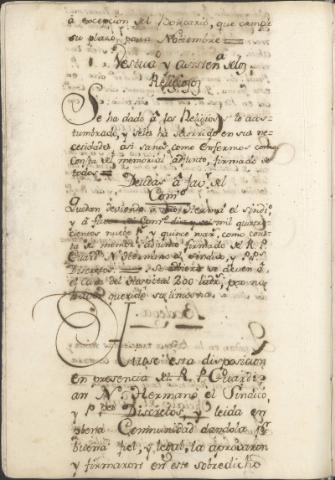 â excepcion del Boticario, que cumple
su plazo por Noviembre
Vestuo. y assisten.ª de los
Religiosos
Se ha dado â los Religiosos lo acos-
tumbrado, y se les ha socorrido en sus ne-
cesidades asi sanos como Enfermos como
consta del memorial adjunto firmado de
todos
Deudas â fav. del
Comto.
Quedan deviendo â nro. Hermno. el sindi.
y â
cientos nueve ps. y quince mar. como cons-
ta de memor. adjunto firmado del R. P.
Guard. N. Hermano el Sindico, y Ps.
Discretos se deven â
el Cura del Hospital 200 por no
haver querido su limosna
Leiose esta disposicion
en presencia del R. P. Guardi-
an N. Hermano el Sindico,
y Ps. Discretos, y leida en
plena Communidad dandola pr.
buena fiel, y legal, la aprovaron
y firmaron en este sobredicho